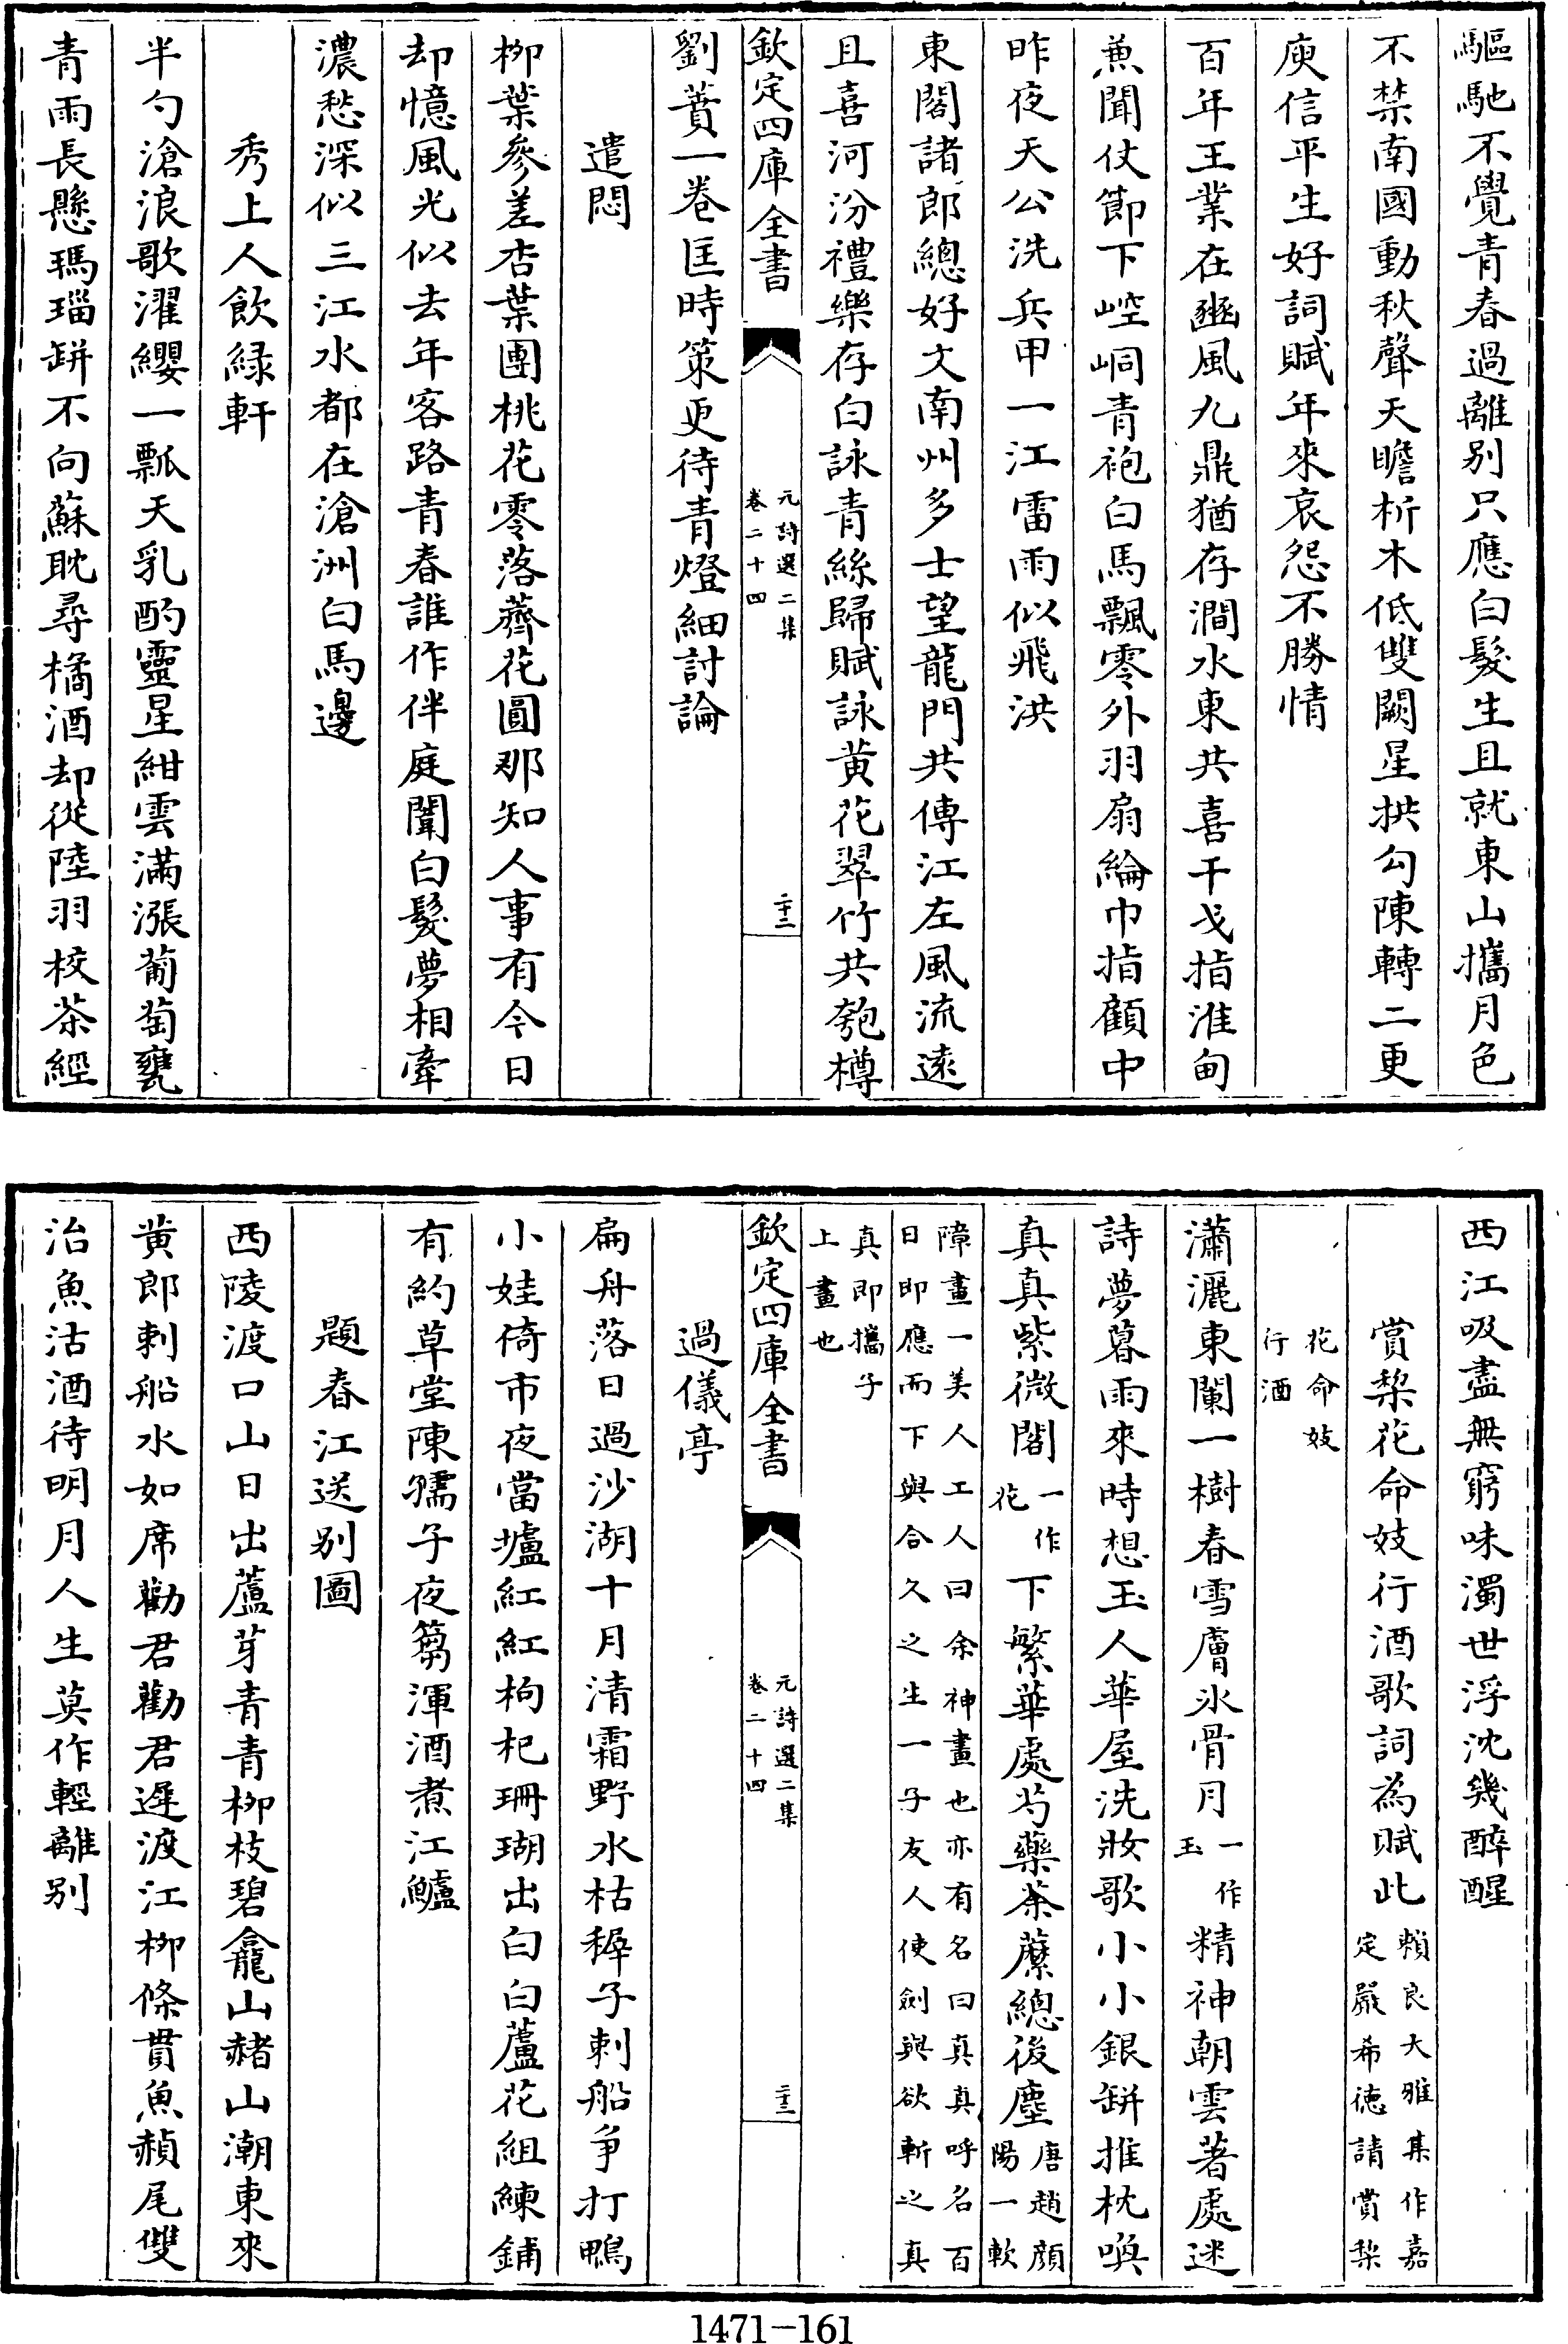 驅馳不覺青春過離别只應白髮生且就東山攜月色
不禁南國動秋聲天瞻析木低雙闕星拱勾陳轉二更
庾信平生好詞賦年來哀怨不勝情
百年王業在豳風九鼎猶存澗水東共喜干戈指淮甸
兼聞仗節下崆峒青袍白馬飄零外羽扇綸巾指顧中
昨夜天公洗兵甲一江雷雨似飛洪
東閣諸郎總好文南州多士望龍門共傳江左風流逺
且喜河汾禮樂存白詠青絲歸賦詠黄花翠竹共匏樽
欽定四庫全書
元詩選二集
卷二十四
二十二
劉蕡一卷匡時策更待青燈細討論
遣悶
柳葉參差杏葉團桃花零落薺花圓那知人事有今日
却憶風光似去年客路青春誰作伴庭闈白髮夢相牽
濃愁深似三江水都在滄洲白馬邊
秀上人飲緑軒
半勺滄浪歌濯纓一瓢天乳酌靈星紺雲滿漲葡萄甕
青雨長懸瑪瑙缾不向蘇耽尋橘酒却從陸羽校茶經
西江吸盡無窮味濁世浮沈幾醉醒
賞棃花命妓行酒歌詞為賦此
頼良大雅集作嘉
定嚴希徳請賞棃
花命妓
行酒
瀟灑東闌一樹春雪膚氷骨月
一作
玉
精神朝雲著處迷
詩夢暮雨來時想玉人華屋洗妝歌小小銀缾推枕喚
真真紫微閣
一作
花
下繁華處芍藥荼蘼總後塵
唐趙顔
陽一軟
障畫一美人工人曰余神畫也亦有名曰真真呼名百
日即應而下與合久之生一子友人使劍與欲斬之真
真即攜子
上畫也
欽定四庫全書
元詩選二集
卷二十四
二十三
過儀亭
扁舟落日過沙湖十月清霜野水枯稺子刺船爭打鴨
小娃倚市夜當壚紅紅枸杞珊瑚出白白蘆花組練鋪
有約草堂陳孺子夜篘渾酒煮江鱸
題春江送别圖
西陵渡口山日出蘆芽青青柳枝碧龕山赭山潮東來
黄郎刺船水如席勸君勸君遲渡江柳條貫魚赬尾雙
治魚沽酒待明月人生莫作輕離别
1471-161